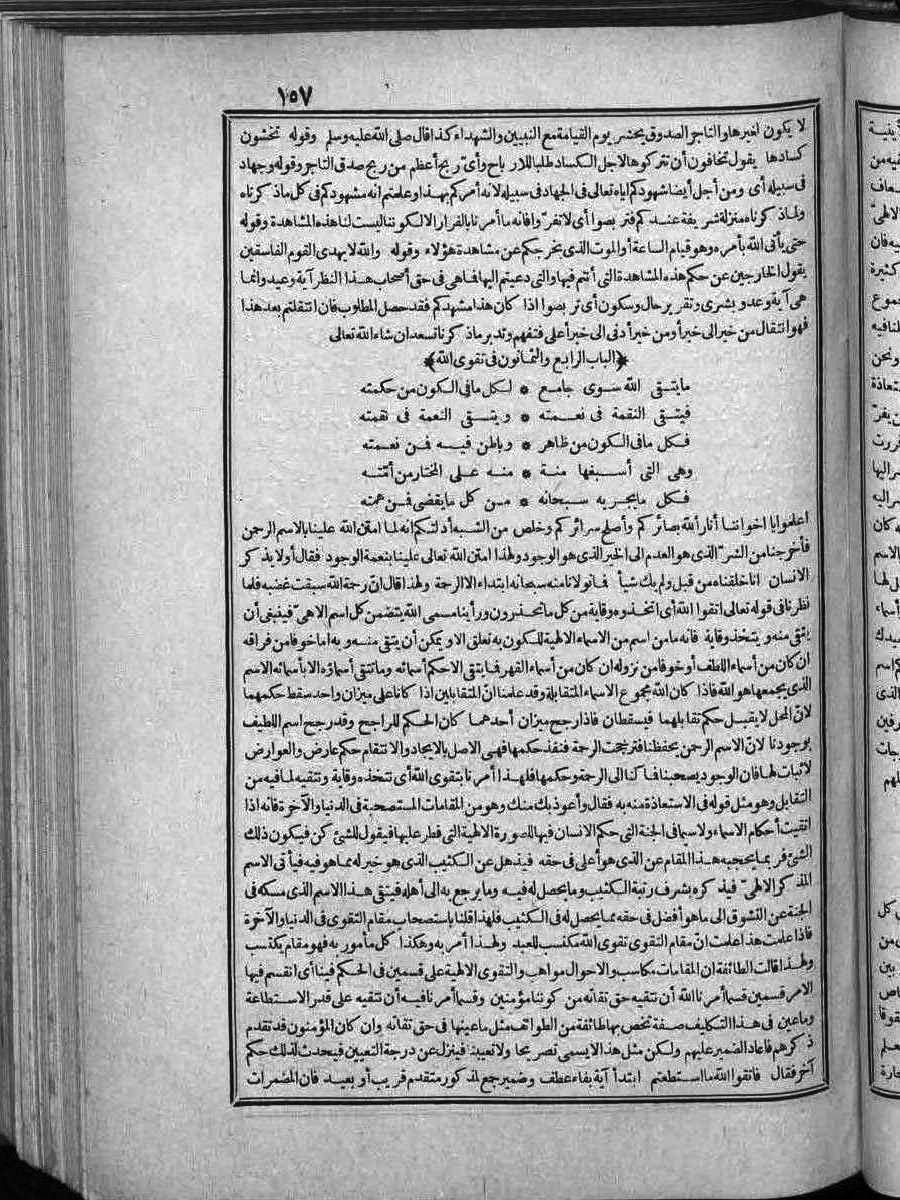 ١٥٧
لا يكون لغيرها والتاجر الصدوق يحشر يوم القيامة مع النبيين والشهداء كذا قال صلى الله عليه وسلم وقوله تخشون
كسادها يقول تخافون أن تتركوها لاجل الكساد طلبا للار باح وأى ربح أعظم من ربح صدق التاجر وقوله وجهاد
فى سبيله أى ومن أجل أيضا شهودكم اياه تعالى فى الجهاد فى سبيله لانه أمركم بهذا وعلمتم انه مشهودكم فى كل ماذكرناه
ولماذكرناه منزلة شريفة عندكم فتربصوا أى لا تفرّوا فانه ما أمرنا بالفرار الا لكوننا ليست لنا هذه المشاهدة وقوله
حتى يأتى الله بأمره وهو قيام الساعة أو الموت الذى يخرجكم عن مشاهدة هؤلاء وقوله والله لا يهدى القوم الفاسقين
يقول الخارجين عن حكم هذه المشاهدة التى أنتم فيها والتى دعيتم اليها فما هى فى حق أصحاب هذا النظر آية وعيد وانما
هى آية وعد وبشرى وتقرير حال وسكون أى تربصوا اذا كان هذا مشهدكم فقد حصل المطلوب فان انتقلتم بعد هذا
فهو انتقال من خير الى خير أو من خير أدنى الى خير أعلى فتفهم وتدبر ماذكرنا تسعد ان شاء الله تعالى
﴿الباب الرابع والثمانون فى تقوى الله﴾
مايتقى الله سوى جامع * لكل مافى الكون من حكمته
فيتقى النقمة فى نعمته * ويتقى النعمة فى نقمته
فكل مافى الكون من ظاهر * وباطن فيه فمن نعمته
وهى التى أسبغها منة * منه على المختار من أمّته
فكل مايجريه سبحانه * من كل مايقضى فمن همته
اعلموا يا اخواننا أنار الله بصائركم وأصلح سرائركم وخلص من الشبه أدلتكم انه لما امتن الله علينا بالاسم الرحمن
فأخرجنا من الشرّ الذى هو العدم الى الخير الذى هو الوجود ولهذا امتن الله تعالى علينا بنعمة الوجود فقال أولا يذكر
الانسان انا خلقناه من قبل ولم يك شيأ فما تولانا منه سبحانه ابتداء الا الرحمة ولهذا قال انّ رحمة الله سبقت غضبه فلما
نظرنا فى قوله تعالى اتقوا الله أى اتخذوه وقاية من كل ما تحذرون ورأينا مسمى الله يتضمن كل اسم الاهىّ فينبغى أن
يتقى منه ويتخذ وقاية فانه ما من اسم من الاسماء الالهية للكون به تعلق الا ويمكن أن يتقى منه وبه اما خوفا من فراقه
ان كان من أسماء اللطف أو خوفا من نزوله ان كان من أسماء القهر فما يتقى الاحكم أسمائه وما تتقى أسماؤه الا بأسمائه الاسم
الذى يجمعها هو الله فاذا كان الله مجموع الاسماء المتقابلة وقد علمنا انّ المتقابلين اذا كانا على ميزان واحد سقط حكمهما
لانّ المحل لا يقبل حكم تقابلهما فيسقطان فاذا رجح ميزان أحدهما كان الحكم للراجح وقد رجح اسم اللطيف
بوجودنا لانّ الاسم الرحمن يحفظنا فترجحت الرحمة فنفذ حكمها فهى الاصل بالايجاد والانتقام حكم عارض والعوارض
لاثبات لها فان الوجود يصحبنا فما كنا الى الرحمة وحكمها فلهذا أمرنا بتقوى الله أى تتخذه وقاية وتتقيه لما فيه من
التقابل وهو مثل قوله فى الاستعاذة منه به فقال وأعوذ بك منك وهو من المقامات المستصحبة فى الدنيا والآخرة فانه اذا
اتقيت أحكام الاسماء ولا سيما فى الجنة التى حكم الانسان فيها للصورة الالهية التى فطر عليها فيقول للشئ كن فيكون ذلك
الشئ فربما يحجبه هذا المقام عن الذى هو أعلى فى حقه فيذهل عن الكثيب الذى هو خير له مما هو فيه فيأتى الاسم
المذكر الالهىّ فيذكره بشرف رتبة الكثيب وما يحصل له فيه وما يرجع به الى أهله فيتقى هذا الاسم الذى مسكه فى
الجنة عن التشوق الى ماهو أفضل فى حقه مما يحصل له فى الكثيب فلهذا قلنا باستصحاب مقام التقوى فى الدنيا والآخرة
فاذا علمت هذا علمت انّ مقام التقوى تقوى الله مكتسب للعبد ولهذا أمر به وهكذا كل مأمور به فهو مقام يكتسب
ولهذا قالت الطائفة ان المقامات مكاسب والاحوال مواهب والتقوى الالهية على قسمين فى الحكم فينا أى انقسم فيها
الامر قسمين قسما أمرنا الله أن نتقيه حق تقاته من كوننا مؤمنين وقسما أمرنا فيه أن نتقيه على قدر الاستطاعة
وما عين فى هذا التكليف صفة تخص بها طائفة من الطوائف مثل ماعينها فى حق تقاته وان كان المؤمنون قد تقدم
ذكرهم فاعاد الضمير عليهم ولكن مثل هذا لا يسمى تصريحا ولا تعيينا فينزل عن درجة التعيين فيحدث لذلك حكم
آخر فقال فاتقوا الله ما استطعتم ابتدأ آية بفاء عطف وضمير جمع لمذكور متقدم قريب أو بعيد فان المضمرات